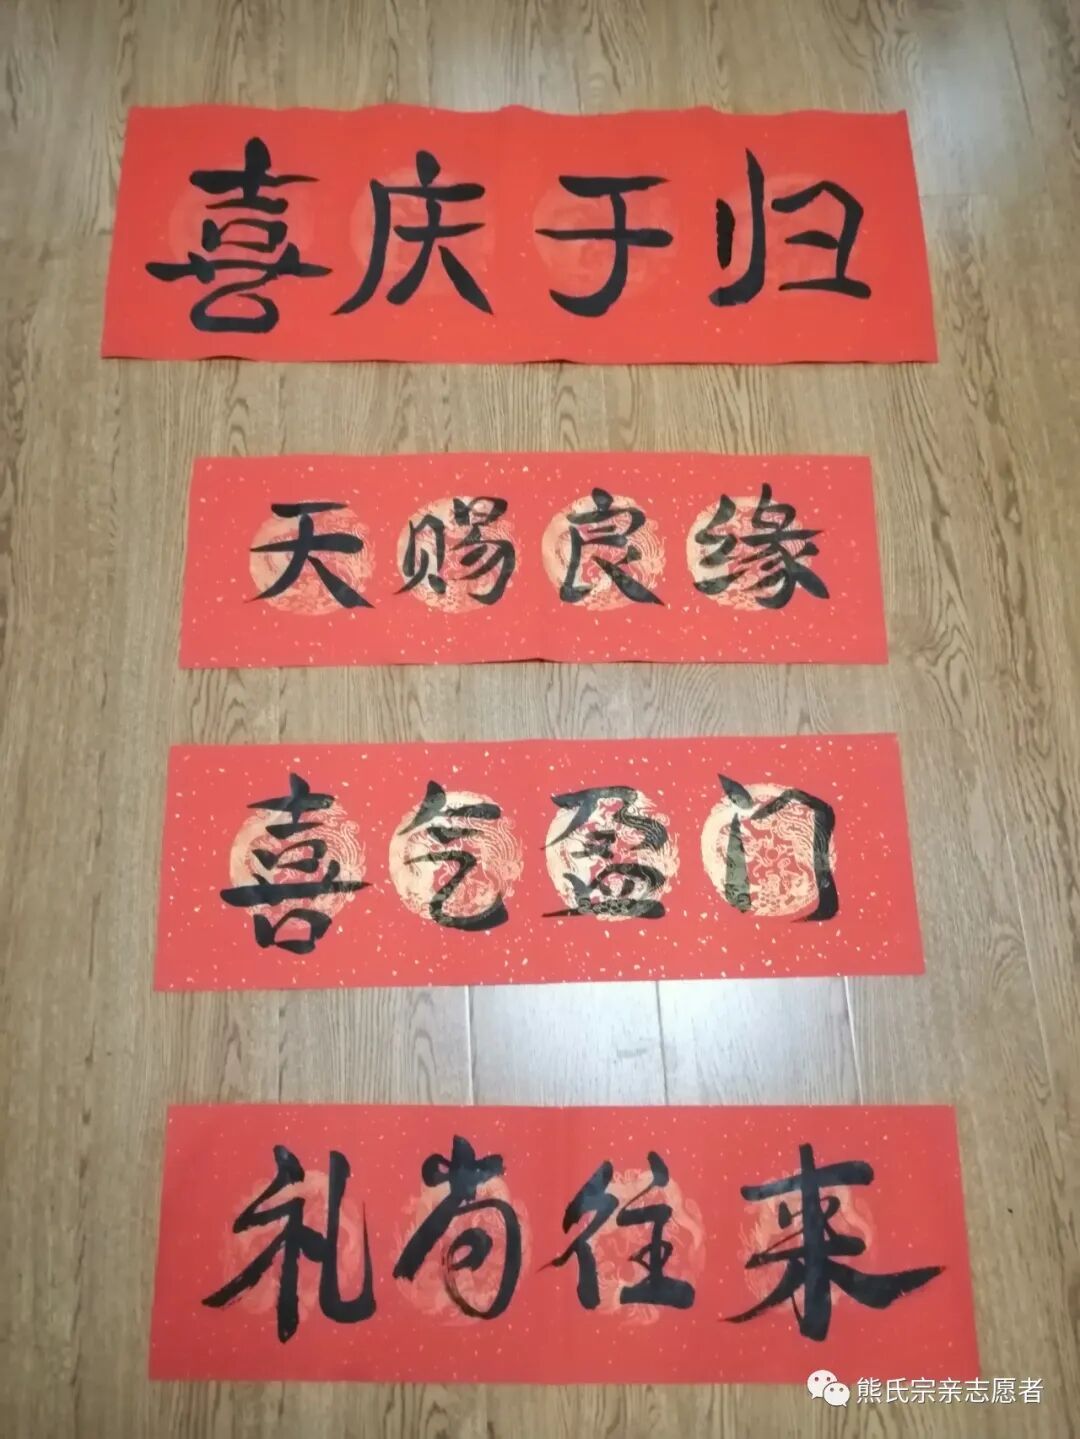 喜庆于归
天赐良缘
喜气盈门
礼尚往来
熊氏宗亲志愿者